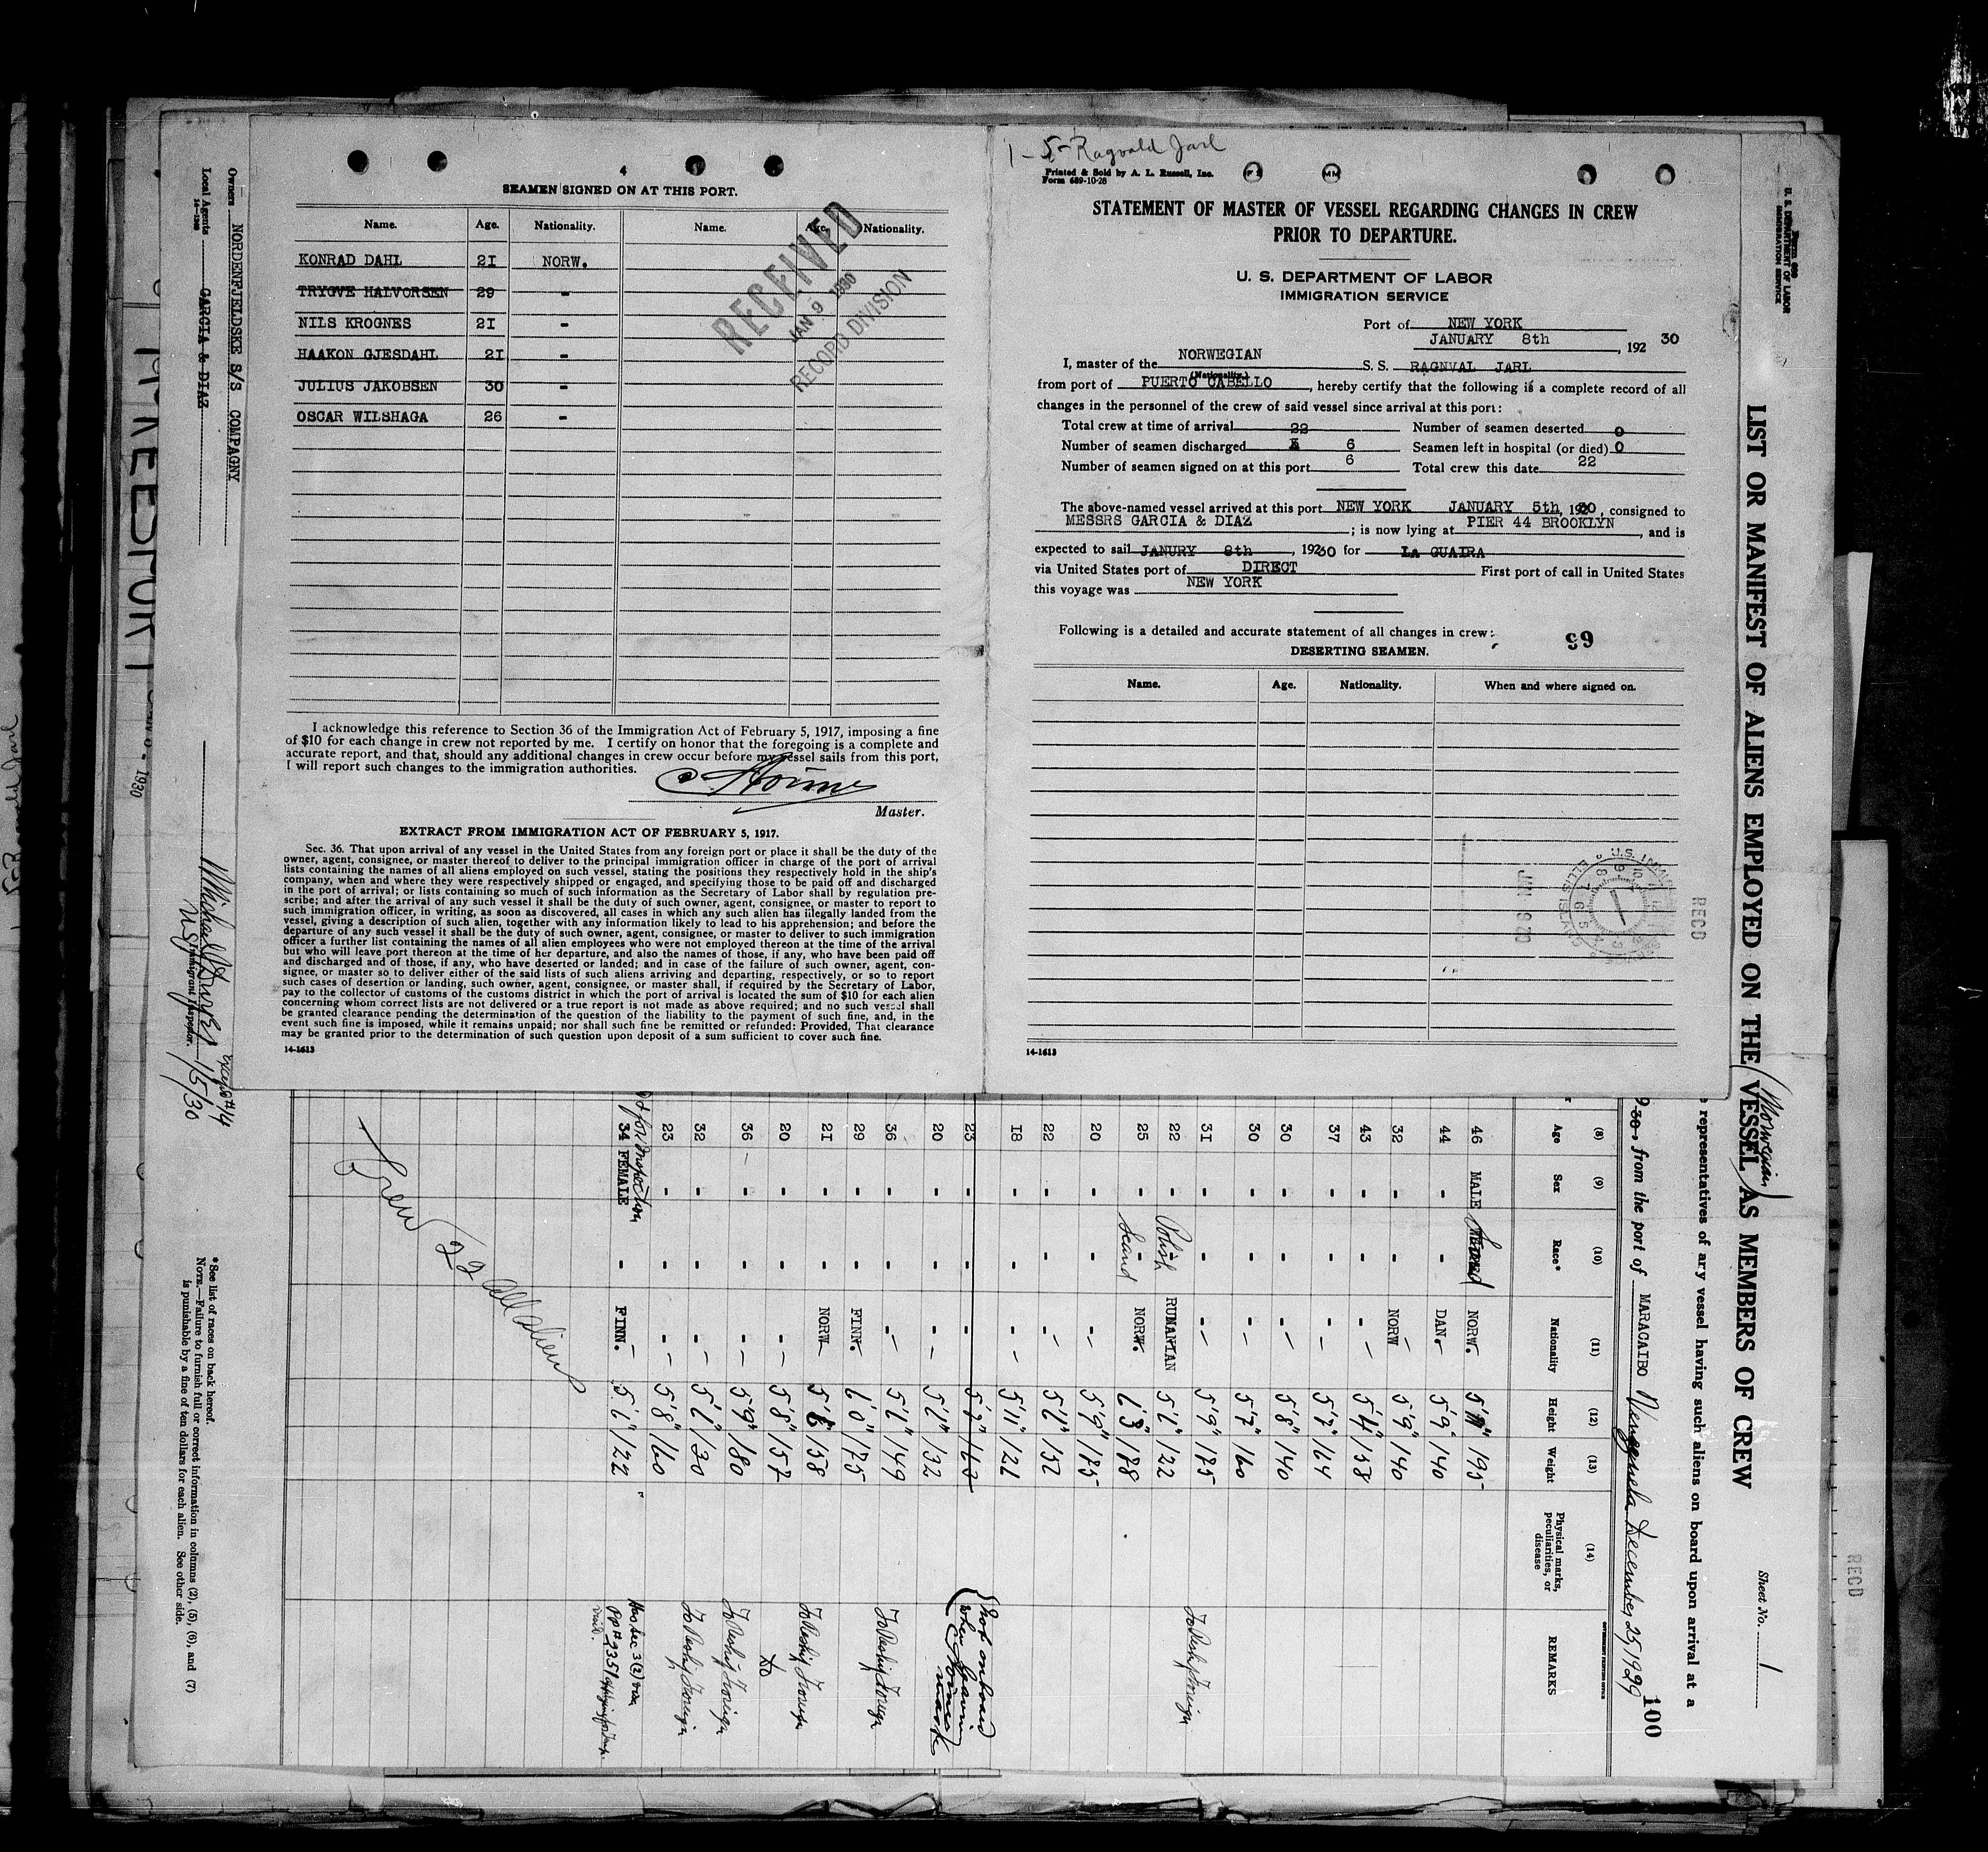 4
SEAMEN SIGNED ON AT THIS PORT.
Name. Age. Nationality. Name. Age. Nationality.
KONRAD DAHL 21 NORW.
TRYGVE HALVORSEN 29 -
NILS KROGNES 21 -
HAAKON GJESDAHL 21 -
JULIUS JAKOBSEN 30 -
OSCAR WILSHAGA 26 -
RECEIVED
JAN 9 1930
RECORD DIVISION
I acknowledge this reference to Section 36 of the Immigration Act of February 5, 1917, imposing a fine
of $10 for each change in crew not reported by me. I certify on honor that the foregoing is a complete and
accurate report, and that, should any additional changes in crew occur before my vessel sails from this port,
I will report such changes to the immigration authorities.
Master.
EXTRACT FROM IMMIGRATION ACT OF FEBRUARY 5, 1917.
Sec. 36. That upon arrival of any vessel in the United States from any foreign port or place it shall be the duty of the
owner, agent, consignee, or master thereof to deliver to the principal immigration officer in charge of the port of arrival
lists containing the names of all aliens employed on such vessel, stating the positions they respectively hold in the ship's
company, when and where they were respectively shipped or engaged, and specifying those to be paid off and discharged
in the port of arrival; or lists containing so much of such information as the Secretary of Labor shall by regulation pre-
scribe; and after the arrival of any such vessel it shall be the duty of such owner, agent, consignee, or master to report to
such immigration officer, in writing, as soon as discovered, all cases in which any such alien has illegally landed from the
vessel, giving a description of such alien, together with any information likely to lead to his apprehension; and before the
departure of any such vessel it shall be the duty of such owner, agent, consignee, or master to deliver to such immigration
officer a further list containing the names of all alien employees who were not employed thereon at the time of the arrival
but who will leave port thereon at the time of her departure, and also the names of those, if any, who have been paid off
and discharged and of those, if any, who have deserted or landed; and in case of the failure of such owner, agent, con-
signee, or master so to deliver either of the said lists of such aliens arriving and departing, respectively, or so to report
such cases of desertion or landing, such owner, agent, consignee, or master shall, if required by the Secretary of Labor,
pay to the collector of customs of the customs district in which the port of arrival is located the sum of $10 for each alien
concerning whom correct lists are not delivered or a true report is not made as above required; and no such vessel shall
be granted clearance pending the determination of the question of the liability to the payment of such fine, and, in the
event such fine is imposed, while it remains unpaid; nor shall such fine be remitted or refunded: Provided, That clearance
may be granted prior to the determination of such question upon deposit of a sum sufficient to cover such fine.
14-1613
1 - 5 - Ragvald Jarl
Printed & Sold by A. L. Russell, Inc.
Form 689-10-28
STATEMENT OF MASTER OF VESSEL REGARDING CHANGES IN CREW
PRIOR TO DEPARTURE.
U. S. DEPARTMENT OF LABOR
IMMIGRATION SERVICE
Port of NEW YORK
JANUARY 8th, 192 30
I, master of the NORWEGIAN S. S. RAGNVAL JARL
(Nationality.)
from port of PUERTO CABELLO, hereby certify that the following is a complete record of all
changes in the personnel of the crew of said vessel since arrival at this port:
Total crew at time of arrival 22 Number of seamen deserted 0
Number of seamen discharged 6 Seamen left in hospital (or died) 0
Number of seamen signed on at this port 6 Total crew this date 22
The above-named vessel arrived at this port NEW YORK JANUARY 5th, 1930, consigned to
MESSRS GARCIA & DIAZ; is now lying at PIER 44 BROOKLYN, and is
expected to sail JANURY 8th, 19230 for LA GUAIRA
via United States port of DIRECT First port of call in United States
this voyage was NEW YORK
Following is a detailed and accurate statement of all changes in crew:
99
DESERTING SEAMEN.
Name. Age. Nationality. When and where signed on.
14-1613
RECD
U. S. DEPARTMENT OF LABOR
IMMIGRATION SERVICE
LIST OR MANIFEST OF ALIENS EMPLOYED ON THE (Norwegian) VESSEL AS MEMBERS OF CREW
Sheet No. 1
representatives of any vessel having such aliens on board upon arrival at a
from the port of MARACAIBO Venezuela December 25, 1929
100
(8) (9) (10) (11) (12) (13) (14)
Age Sex Race* Nationality Height Weight Physical marks, peculiarities, or disease REMARKS
46 MALE Scand NORW. 5' 11" 195
44 - - DAN. 5' 9" 140
32 - - NORW 5' 9" 140
43 - - - 5' 4" 158
37 - - - 5' 7" 164
30 - - - 5' 8" 140
30 - - - 5' 7" 160
31 - - - 5' 9" 175 To Reship Foreign
22 - Polish RUMANIAN 5' 6" 122
25 - Scand NORW. 6' 3" 178
20 - - - 5' 9" 175
22 - - - 5' 6" 152
18 - - - 5' 11" 126
23 - - - 5' 7" 163 Not on board when leaving
20 - - - 5' 6" 132
36 - - - 5' 6" 149 To Reship Foreign
29 - - FINN. 6' 0" 175
21 - - NORW 5' 6" 158 To Reship Foreign
20 - - - 5' 8" 157 Do
36 - - - 5' 9" 180 To Reship Foreign
32 - - - 5' 6" 130 To Reship Foreign
23 - - - 5' 8" 160
34 FEMALE - FINN. 5' 6" 122 Has Sec 3 (2) visa
Crew 22 all aliens
* See list of races on back hereof.
NOTE.—Failure to furnish full or correct information in columns (2), (5), (6), and (7)
is punishable by a fine of ten dollars for each alien. See other side.
Owners NORDENFJELDSKE S/S COMPAGNY
Local Agents GARCIA & DIAZ
14-1240
except #14
1/5/30
Immigrant Inspector.
1930
RECD